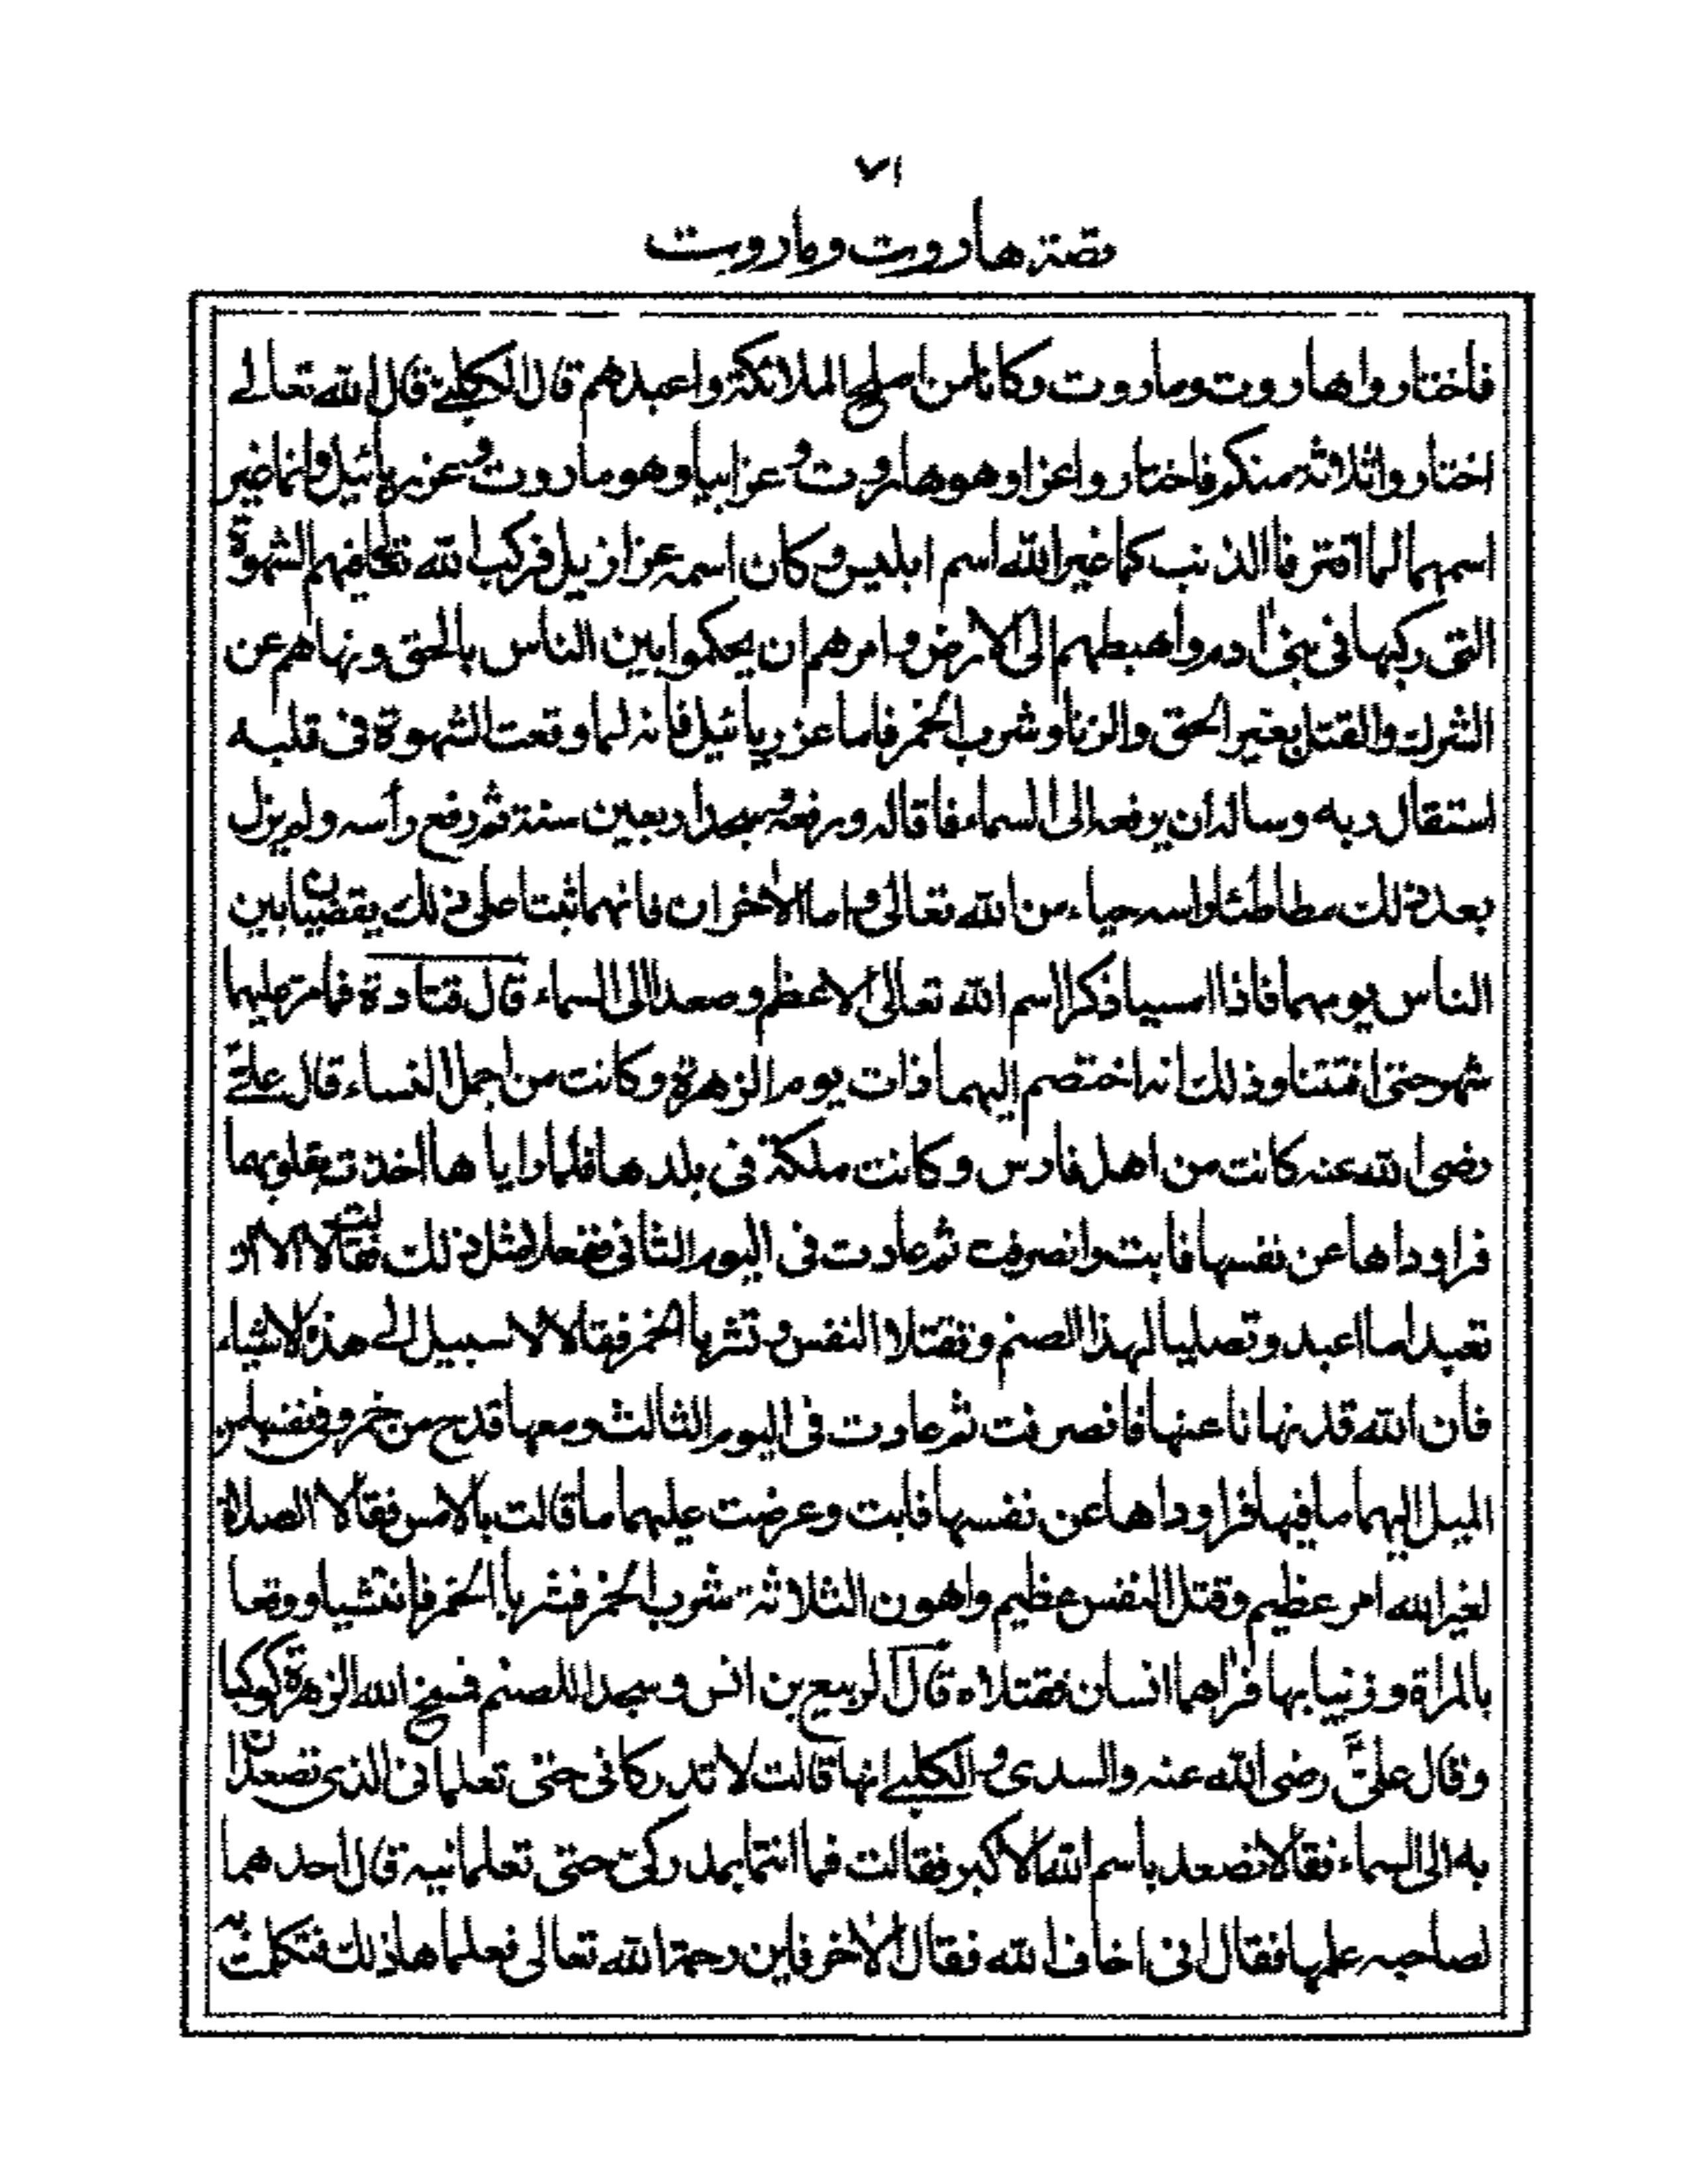 ٧١
قصة هاروت وماروت
فاختاروا هاروت وماروت وكانا من اصلح الملائكة واعبدهم قال الكلبے قال الله تعالے
اختاروا ثلاثة منكم فاختاروا عزا وهو هاروت و عزابيا وهو ماروت و عزريائيل وانما غير
اسمهما لما اقترفا الذنب كما غير الله اسم ابليس و كان اسمه عزازيل فركب الله تعالى فيهم الشهوة
التى ركبها فى بنى اٰدم واهبطهم الى الارض وامرهم ان يحكموا بين الناس بالحق ونهاهم عن
الشرك والقتل بغير الحق والزنا وشرب الخمر فاما عزريائيل فانه لما وقعت الشهوة فى قلبه
استقال ربه وساله ان يرفعه الى السماء فاقاله ورفعه و سجد اربعين سنة ثم رفع رأسه ولم يزل
بعد ذلك مطاطئا راسه حياء من الله تعالى و اما الاٰخران فانهما ثبتا على ذلك يقضيان بين
الناس يومهما فاذا امسيا ذكرا اسم الله تعالى الاعظم وصعدا الى السماء قال قتادة فما مر عليهما
شهر حتى افتتنا وذلك انه اختصم اليهما ذات يوم الزهرة وكانت من اجمل النساء قال علىّ
رضى الله عنه كانت من اهل فارس وكانت ملكة فى بلدها فلما راياها اخذت بقلوبهما
فراوداها عن نفسها فابت وانصرفت ثم عادت فى اليوم الثانى ففعلا مثل ذلك فقالت لا الا ان
تعبدا ما اعبد وتصليا لهذا الصنم وتقتلا النفس و تشربا الخمر فقالا لا سبيل الے هذه الاشياء
فان الله قد نهانا عنها فانصرفت ثم عادت فى اليوم الثالث ومعها قدح من خمر وفى نفسها من
الميل اليهما ما فيها فراوداها عن نفسها فابت وعرضت عليهما ما قالت بالامس فقالا الصلاة
لغير الله امر عظيم وقتل النفس عظيم واهون الثلاثة شرب الخمر فشربا الخمر فانتشيا ووقعا
بالمراة وزنيا بها فراٰهما انسان فقتلاه قال الربيع بن انس و سجدا للصنم فمسخ الله الزهرة كوكبا
وقال علىّ رضى الله عنه والسدى و الكلبے انها قالت لا تدركانى حتى تعلمانى الذى تصعدان
به الى السماء فقالا نصعد باسم الله الاكبر فقالت فما انتما بمدركىّ حتى تعلمانيه قال احدهما
لصاحبه علمها فقال انى اخاف الله فقال الاٰخر فاين رحمة الله تعالى فعلماها ذلك فتكلمت به